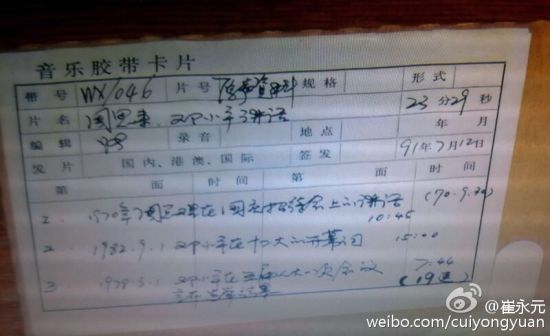 音乐胶带卡片
带号 WX/046 片号 规格 形式
片名 周恩来、邓小平讲话 23分29秒
编辑 录音 地点 年 月
发片 国内、港澳、国际 签发 91年7月12日
第 面 时间 第 面 时间
1. 1970年周恩来在国庆招待会上的讲话 (70.9.30)
10:45
2. 1982.9.1 邓小平在十二大的开幕词 15:00
3 1978.3.1 邓小平在五届人大一次会议 7:44
@崔永元
weibo.com/cuiyongyuan